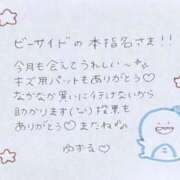 ビーサイドの本指名さま!!
今月も会えてうれしい〜🌟
キズ用パットもありがとう♡
なかなか買いに行けないから
助かります(;;)投票も
ありがとう♡またね♪
ゆずる♡